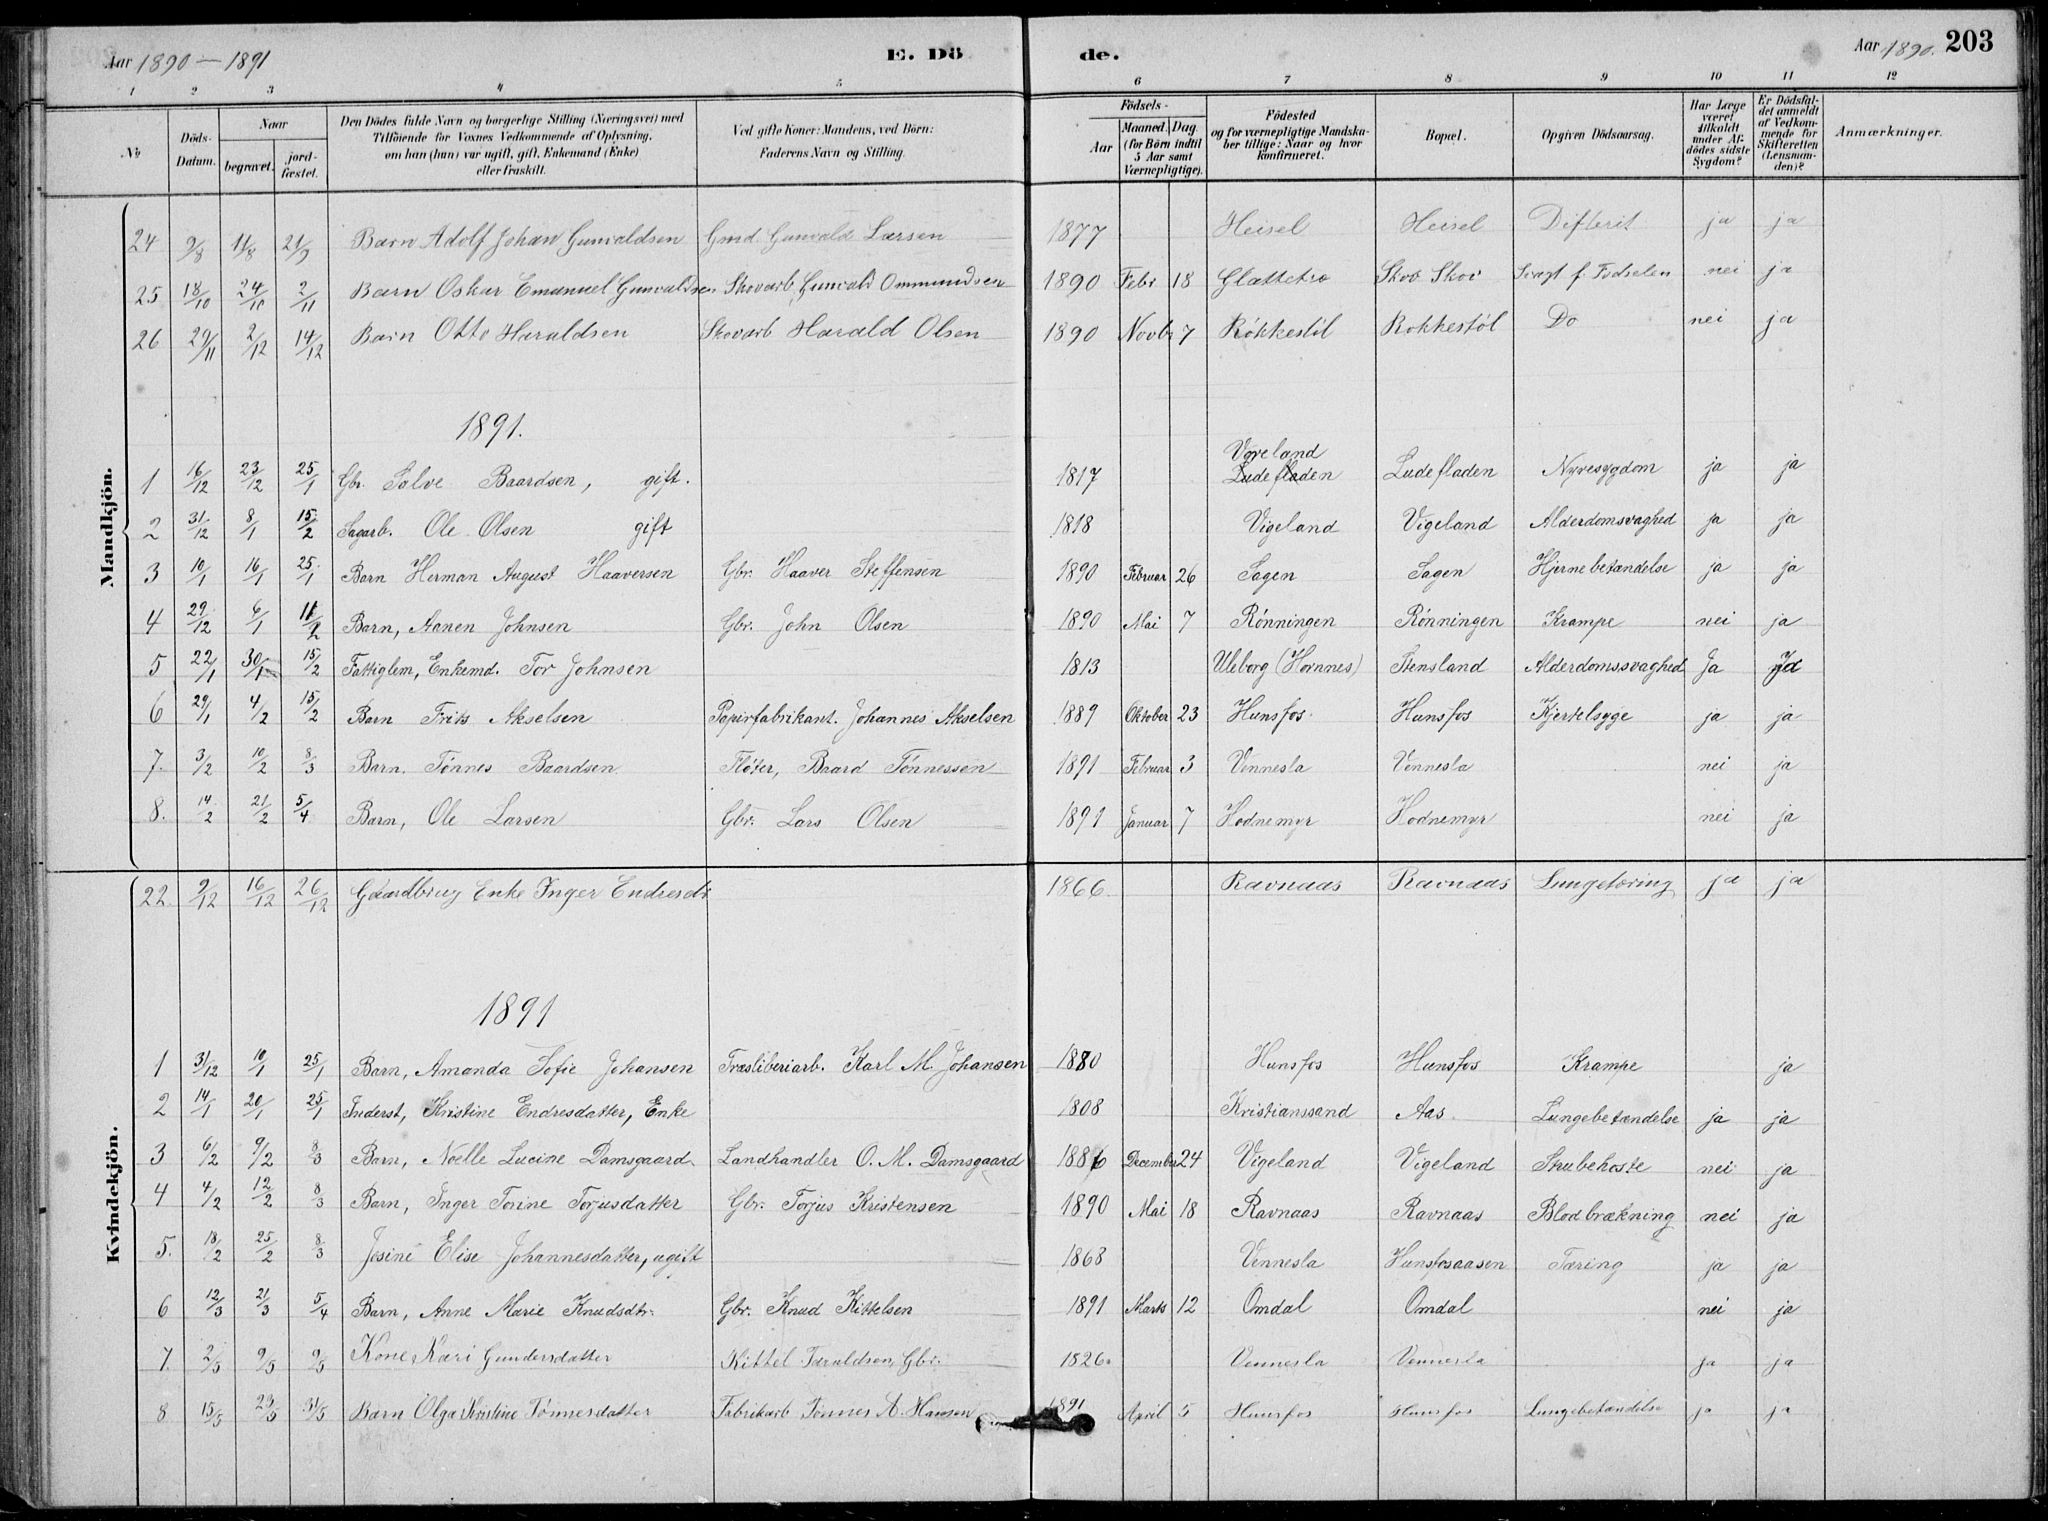 Aar 1890 – 1891 E. Dö de. Aar 1890. 203
1 2 3 4 5 6 7 8 9 10 11 12
No
Döds-Datum.
Naar
begravet.
jord-fæstet.
Den Dödes fulde Navn og borgerlige Stilling (Næringsvei) med
Tilföiende for Voxnes Vedkommende af Oplysning,
om han (hun) var ugift, gift, Enkemand (Enke)
eller fraskilt.
Ved gifte Koner: Mandens, ved Börn:
Faderens Navn og Stilling.
Födsels-
Aar
Maaned. Dag
(for Börn indtil
5 Aar samt
Værnepligtige).
Födested
og for værnepligtige Mandska-
ber tillige: Naar og hvor
konfirmeret.
Bopæl.
Opgiven Dödsaarsag.
Har Læge
været
tilkaldt
under Af-
dödes sidste
Sygdom?
Er Dödsfal-
det anmeldt
af Vedkom-
mende for
Skifteretten
(Lensman-
den)?
Anmærkninger.
Mandkjön.
24 9/8 11/8 21/9 Barn Adolf Johan Gunvaldsen Gmd. Gunvald Larsen 1877 Heisel Heisel Difterit ja ja
25 18/10 24/10 2/11 Barn Oskar Emanuel Gunvaldsen Skovarb. Gunvald Ommundsen 1890 Febr 18 Glattetre Skov Svagt f. Fødselen nei ja
26 29/11 2/12 14/12 Barn Otto Haraldsen Skovarb Harald Olsen 1890 Novb. 7 Rökkestöl Rokkestöl Do nei ja
1891.
1 16/12 23/12 25/1 Gbr. Salve Baardsen, gift. 1817 Voreland Ludefladen Ludefladen Nyresygdom ja ja
2 31/12 8/1 15/2 Sagarb. Ole Olsen gift 1818 Vigeland Vigeland Alderdomsvaghed ja ja
3 10/1 16/1 25/1 Barn Herman August Haaversen Gbr. Haaver Steffensen 1890 Februar 26 Sagen Sagen Hjernebetændelse ja ja
4 29/12 6/1 Barn, Aanen Johnsen Gbr. John Olsen 1890 Mai 7 Rønningen Rønningen Krampe nei ja
5 22/1 30/1 15/2 Fattiglem, Enkemd. Tor Johnsen 1813 Uleberg (Hornnes) Stensland Alderdomssvaghed Ja Ja
6 29/1 4/2 15/2 Barn Frits Akselsen Papirfabrikant. Johannes Akselsen 1889 Oktober 23 Hunsfos Hunsfos Kjertelsyge ja ja
7. 3/2 10/2 8/3 Barn. Tønnes Baardsen Fløter, Baard Tønnessen 1891 Februar 3 Vennesla Vennesla nei ja
8. 14/2 21/2 5/4 Barn, Ole Larsen Gbr. Lars Olsen 1891 Januar 7 Hodnemyr Hodnemyr nei ja
Kvindekjön.
22. 9/12 16/12 26/12 Gaardbrug Enke Inger Endresdt. 1866. Ravnaas Ravnaas Lungetæring ja ja
1891
1 31/12 10/1 25/1 Barn, Amanda Sofie Johansen Træsliberiarb. Karl M. Johansen 1880 Hunsfos Hunsfos Krampe ja
2 14/1 20/1 25/1 Inderst, Kristine Endresdatter, Enke 1808 Kristianssand Aas. Lungebetændelse ja ja
3 6/2 9/2 8/3 Barn, Noelle Lucine Damsgaard Landhandler O. M. Damsgaard 1886 December 24 Vigeland Vigeland Strubehoste nei ja
4 4/2 12/2 8/3 Barn, Inger Torine Torjusdatter Gbr. Torjus Kristensen 1890 Mai 18 Ravnaas Ravnaas Blodbrækning nei ja
5. 18/2 25/2 8/3 Josine Elise Johannesdatter, ugift 1868 Vennesla Hunsfosaasen Tæring ja ja
6 12/3 21/3 5/4 Barn, Anne Marie Knudsdtr. Gbr. Knud Kittelsen 1891 Marts 12 Omdal Omdal nei ja
7. 2/5 9/5 9/5 Kone Kari Gundersdatter Kittel Taraldsen, Gbr. 1826. Vennesla Vennesla ja ja
8 15/5 23/5 31/5 Barn Olga Kristine Tönnesdatter Fabrikarb Tønnes A. Hansen 1891 April 5 Hunsfos Hunsfos Lungebetændelse ja ja